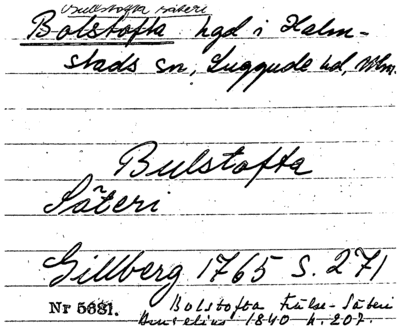 Bullstofta säteri
Bolstofta hgd i Halm-
stads sn, Luggude hd, Mlm.
Bulstofta
Säteri
Gillberg 1765 s. 271
Nr 5681. Bolstofta frälse-Säteri
1840 h. 207.